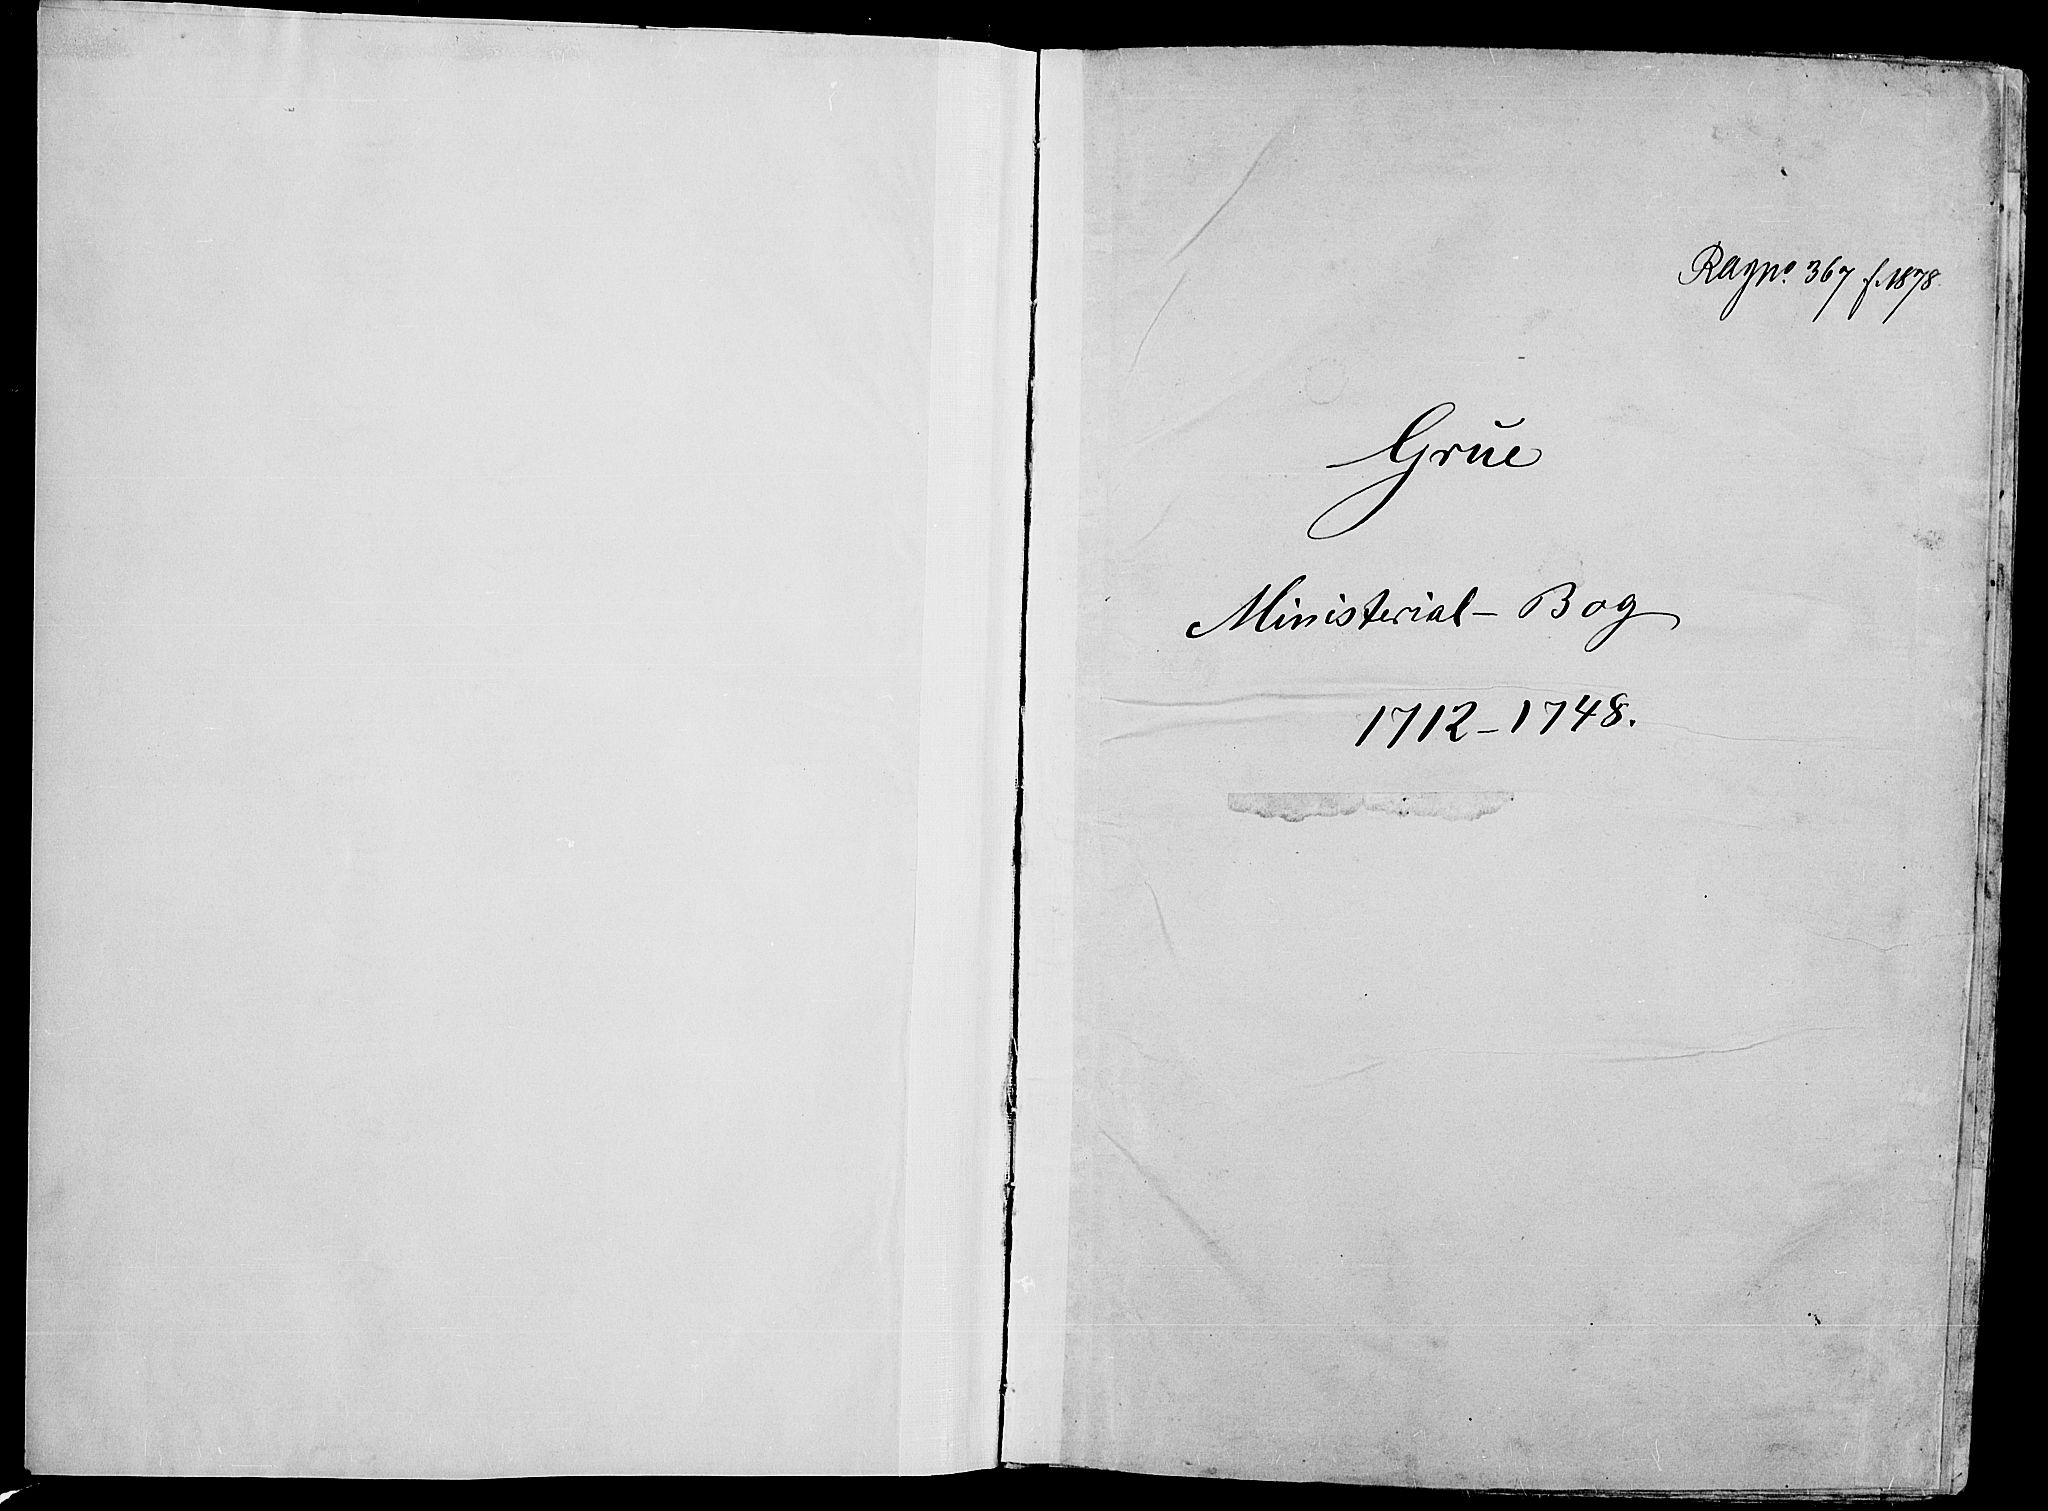 Ragno. 367 f. 1878.
Grue
Ministerial-Bog
1712-1748.